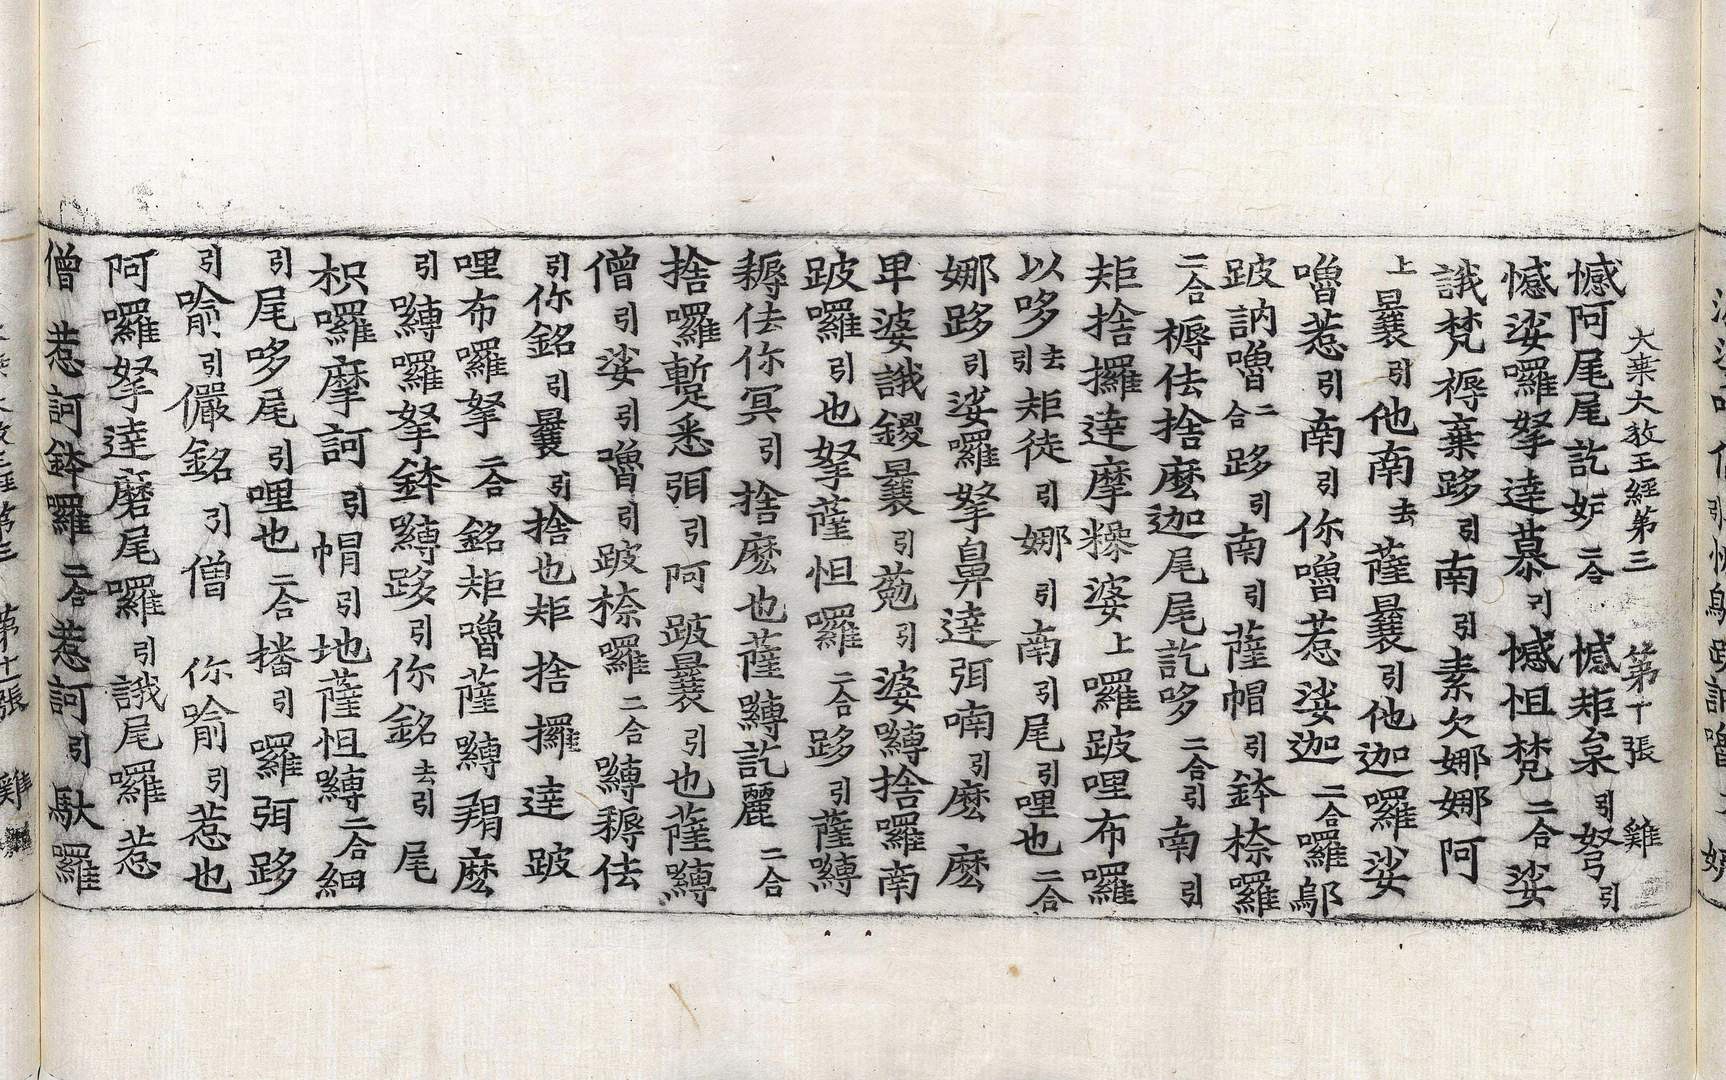 大乗大教王經第三　第十張　雞
憾阿尾尾訖妒二合憾矩枲引努引
憾娑囉拏達慕引憾怛梵二合娑
誐梵褥棄跢引南引素欠娜娜阿
上曩引他南去薩曩引他迦囉娑
嚕惹引南引你嚕惹娑迦二合囉鄔
跛訥嚕二合跢引南引薩帽引鉢捺囉
二合褥佉捨麽迦尾尾訖哆二合引南引
矩捨攞達摩糝婆上囉跛哩布囉
以哆去引矩徒引娜引南引尾引哩也二合
娜跢引娑囉拏鼻達弭喃引麽
卑婆誐鑁曩引葂引婆嚩捨囉南
跛囉引也拏薩怛囉二合跢引薩嚩
耨佉你冥引捨麽也薩嚩訖麗二合
捨囉蹔悉弭引阿跛曩引也薩嚩
僧引娑引嚕引跛捺囉二合嚩耨佉
引你銘引曩引捨也矩捨攞達跛
哩布囉拏二合銘矩嚕薩嚩羯麽
引嚩囉拏鉢嚩跢引你銘去引尾
枳囉摩訶引帽引地薩怛嚩二合細
引尾哆尾引哩也二合播引囉弭跢
引喻引儼銘引僧你喻引惹也
阿囉拏達磨尾囉引誐尾囉惹
僧惹訶鉢囉二合惹訶引馱囉